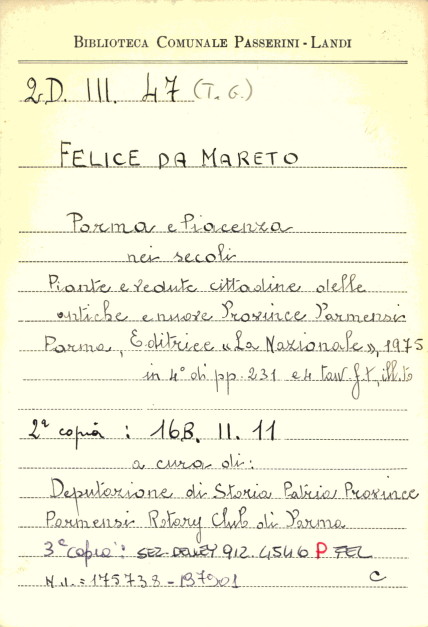 BIBLIOTECA COMUNALE PASSERINI - LANDI
2D. III. 47 (T. G.)
FELICE DA MARETO
Parma e Piacenza
nei secoli
Piante e vedute cittadine delle
antiche e nuove Province Parmensi
Parma, Editrice «La Nazionale», 1975
in 4° di pp. 231 e 4 tav. f.t., ill.to
2ª copia : 16B. II. 11
a cura di:
Deputazione di Storia Patria Province
Parmensi Rotary Club di Parma
3ª copia : 912.4546 P FEL
N.i. = 175738 -
C